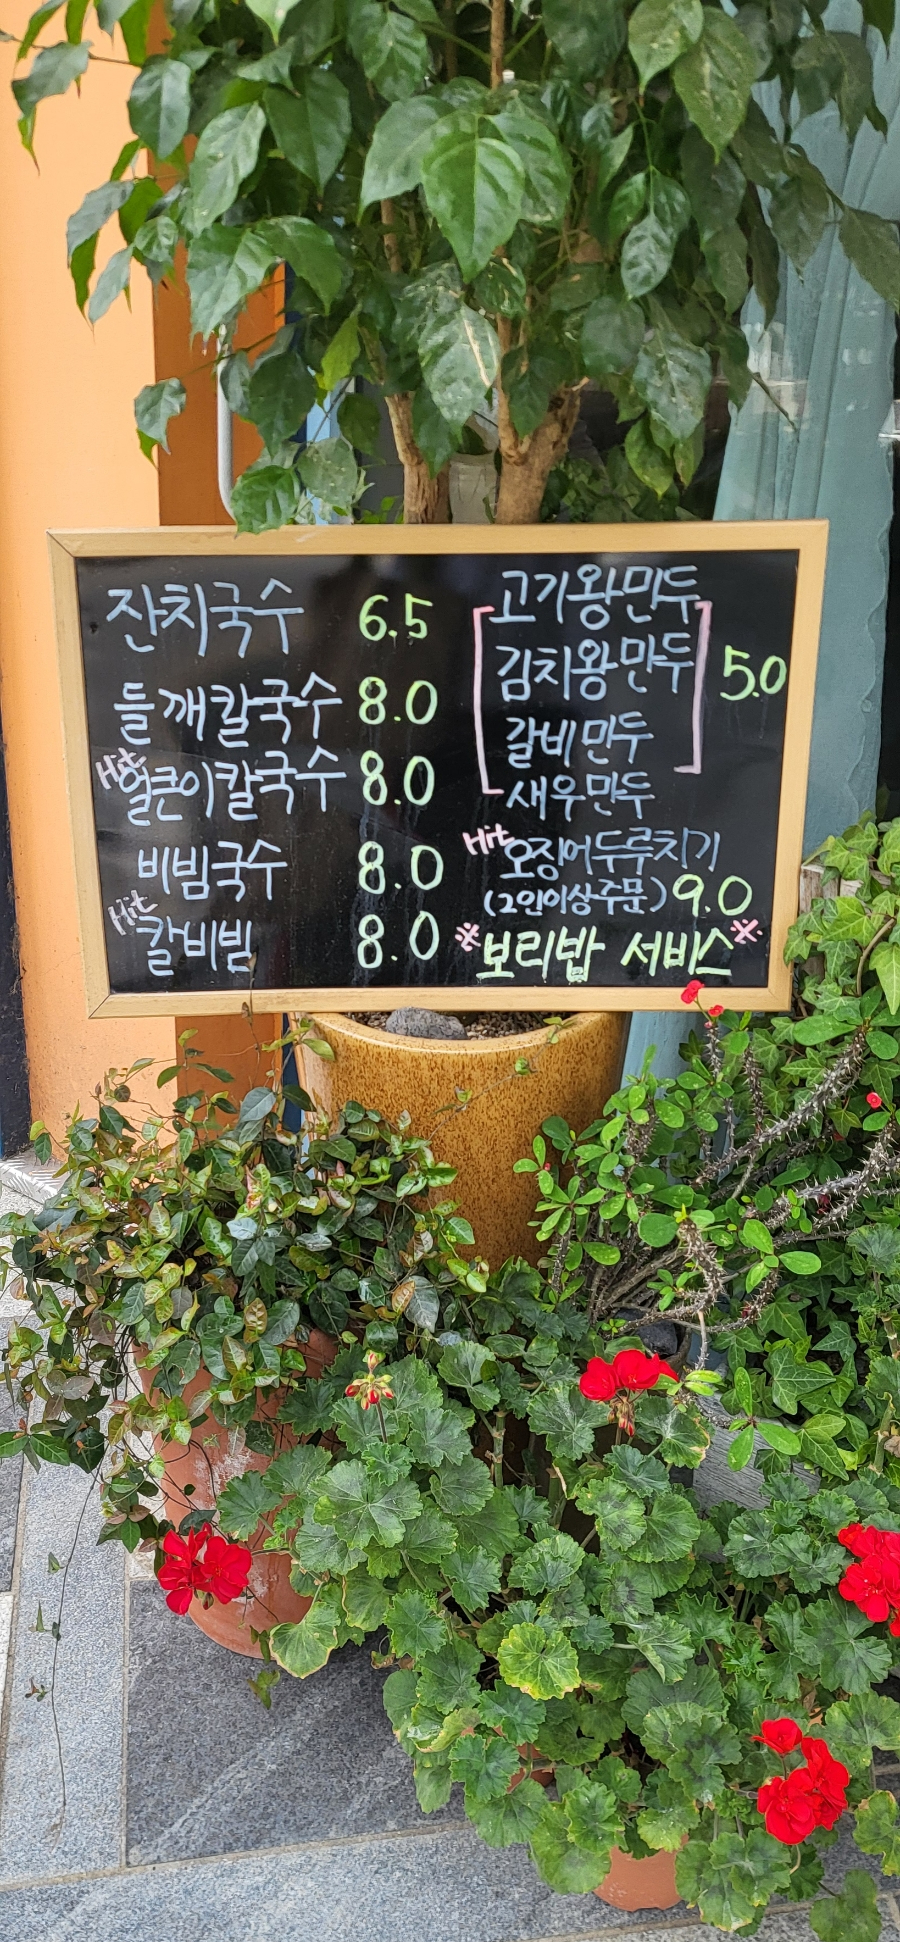 잔치국수 6.5
들깨칼국수 8.0
Hit 얼큰이칼국수 8.0
비빔국수 8.0
Hit 칼비빔 8.0
[고기왕만두
김치왕만두
갈비만두
새우만두] 5.0
Hit 오징어두루치기
(2인이상주문) 9.0
※보리밥 서비스※